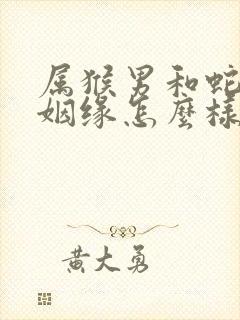 属猴男和蛇
姻缘怎麼樣
黄大勇